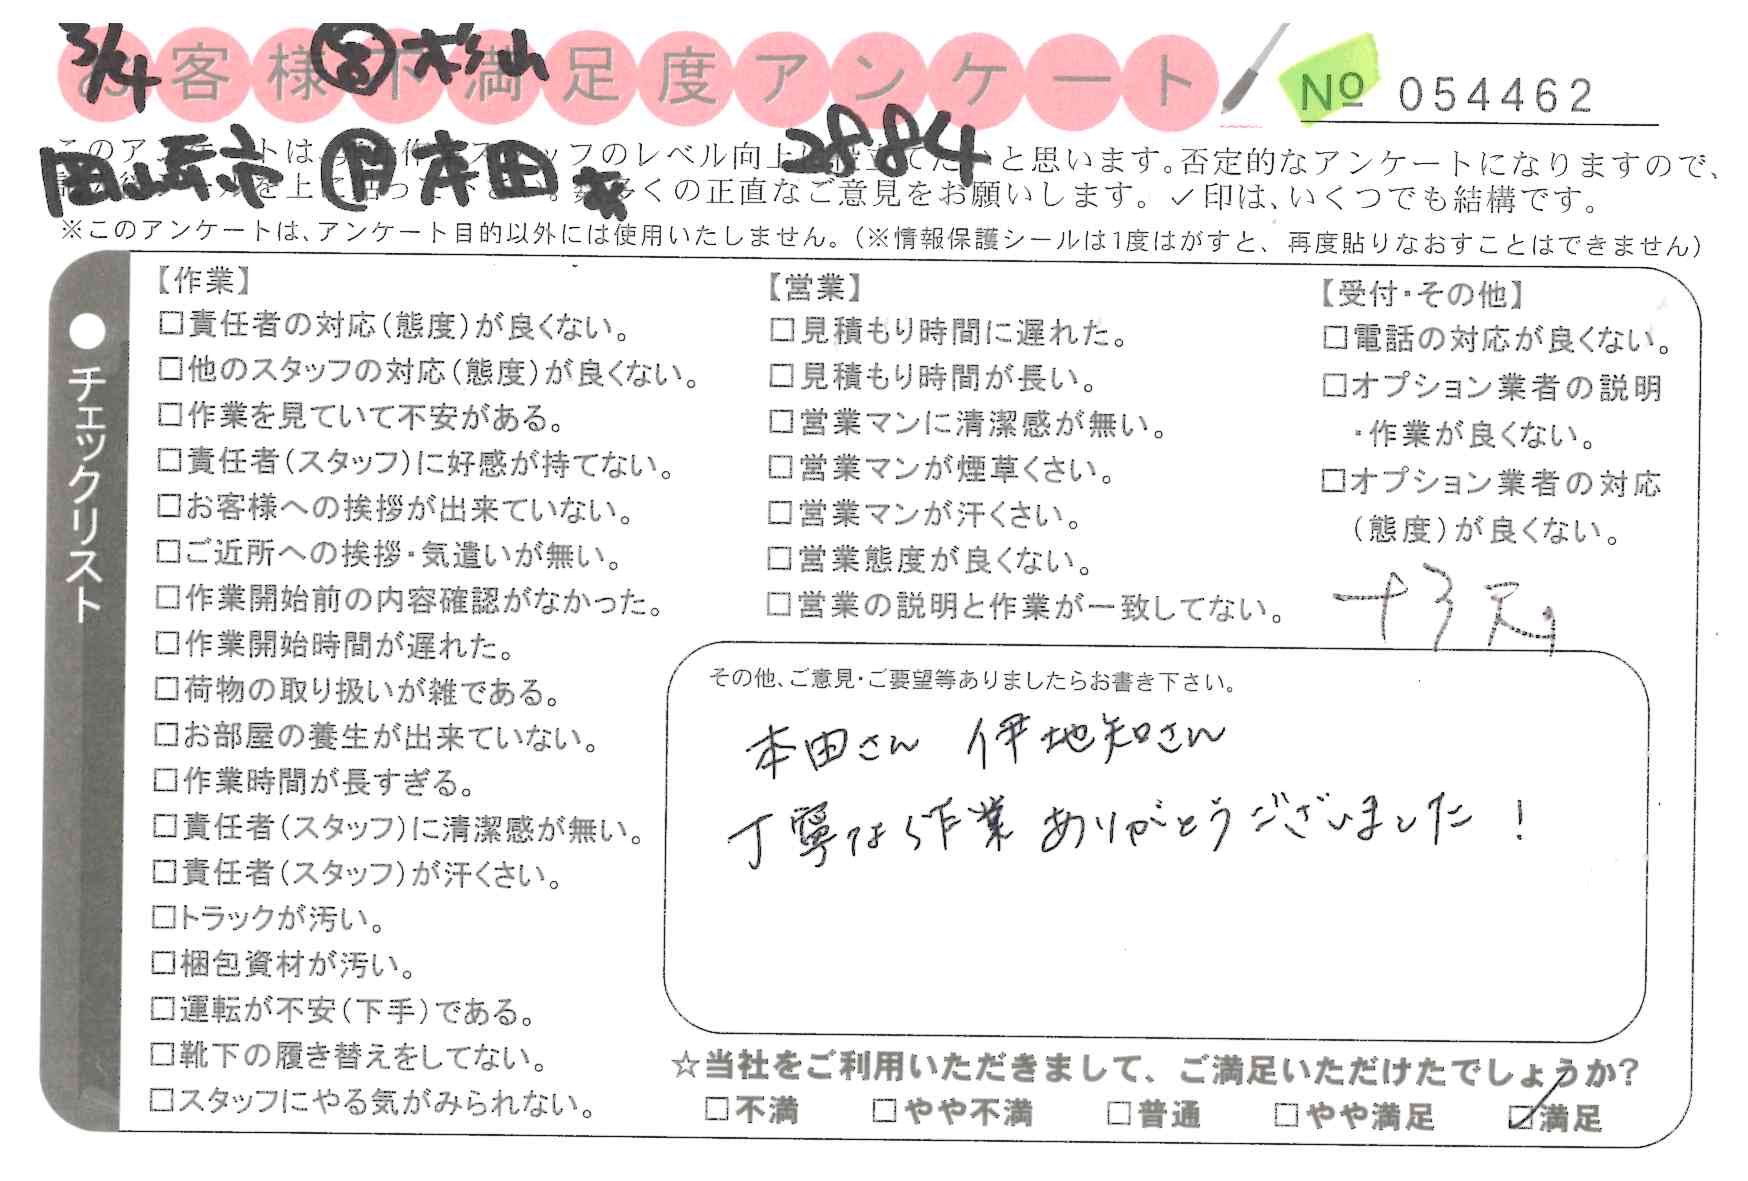 3/4 営 杉山
お客様不満足度アンケート
№ 054462
岡崎市 作 本田 2884
このアンケートは、
スタッフのレベル向上に役立てたいと思います。否定的なアンケートになりますので、
多くの正直なご意見をお願いします。✓印は、いくつでも結構です。
※このアンケートは、アンケート目的以外には使用いたしません。(※情報保護シールは1度はがすと、再度貼りなおすことはできません)
●チェックリスト
【作業】
□責任者の対応(態度)が良くない。
□他のスタッフの対応(態度)が良くない。
□作業を見ていて不安がある。
□責任者(スタッフ)に好感が持てない。
□お客様への挨拶が出来ていない。
□ご近所への挨拶・気遣いが無い。
□作業開始前の内容確認がなかった。
□作業開始時間が遅れた。
□荷物の取り扱いが雑である。
□お部屋の養生が出来ていない。
□作業時間が長すぎる。
□責任者(スタッフ)に清潔感が無い。
□責任者(スタッフ)が汗くさい。
□トラックが汚い。
□梱包資材が汚い。
□運転が不安(下手)である。
□靴下の履き替えをしてない。
□スタッフにやる気がみられない。
【営業】
□見積もり時間に遅れた。
□見積もり時間が長い。
□営業マンに清潔感が無い。
□営業マンが煙草くさい。
□営業マンが汗くさい。
□営業態度が良くない。
□営業の説明と作業が一致してない。
【受付・その他】
□電話の対応が良くない。
□オプション業者の説明
・作業が良くない。
□オプション業者の対応
(態度)が良くない。
その他、ご意見・ご要望等ありましたらお書き下さい。
本田さん 伊地知さん
丁寧な作業ありがとうございました!
☆当社をご利用いただきまして、ご満足いただけたでしょうか?
□不満 □やや不満 □普通 □やや満足 ☑満足